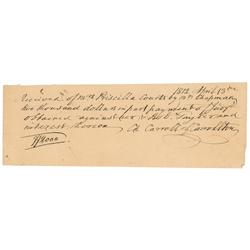 1812 April 13th
Received of Mrs Priscilla Courts by Mr Chapman
two thousand dollars in part payment of Judgt
obtained against her & Robt and
interest thereon Ch. Carroll of Carrollton
$2000